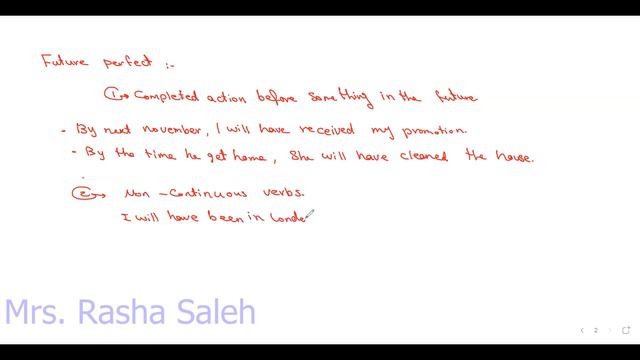 Future perfect :-
① → Completed action before something in the future
- By next november, I will have received my promotion.
- By the time he get home, She will have cleaned the house.
② → Non-Continuous verbs.
I will have been in Londe
Mrs. Rasha Saleh
2